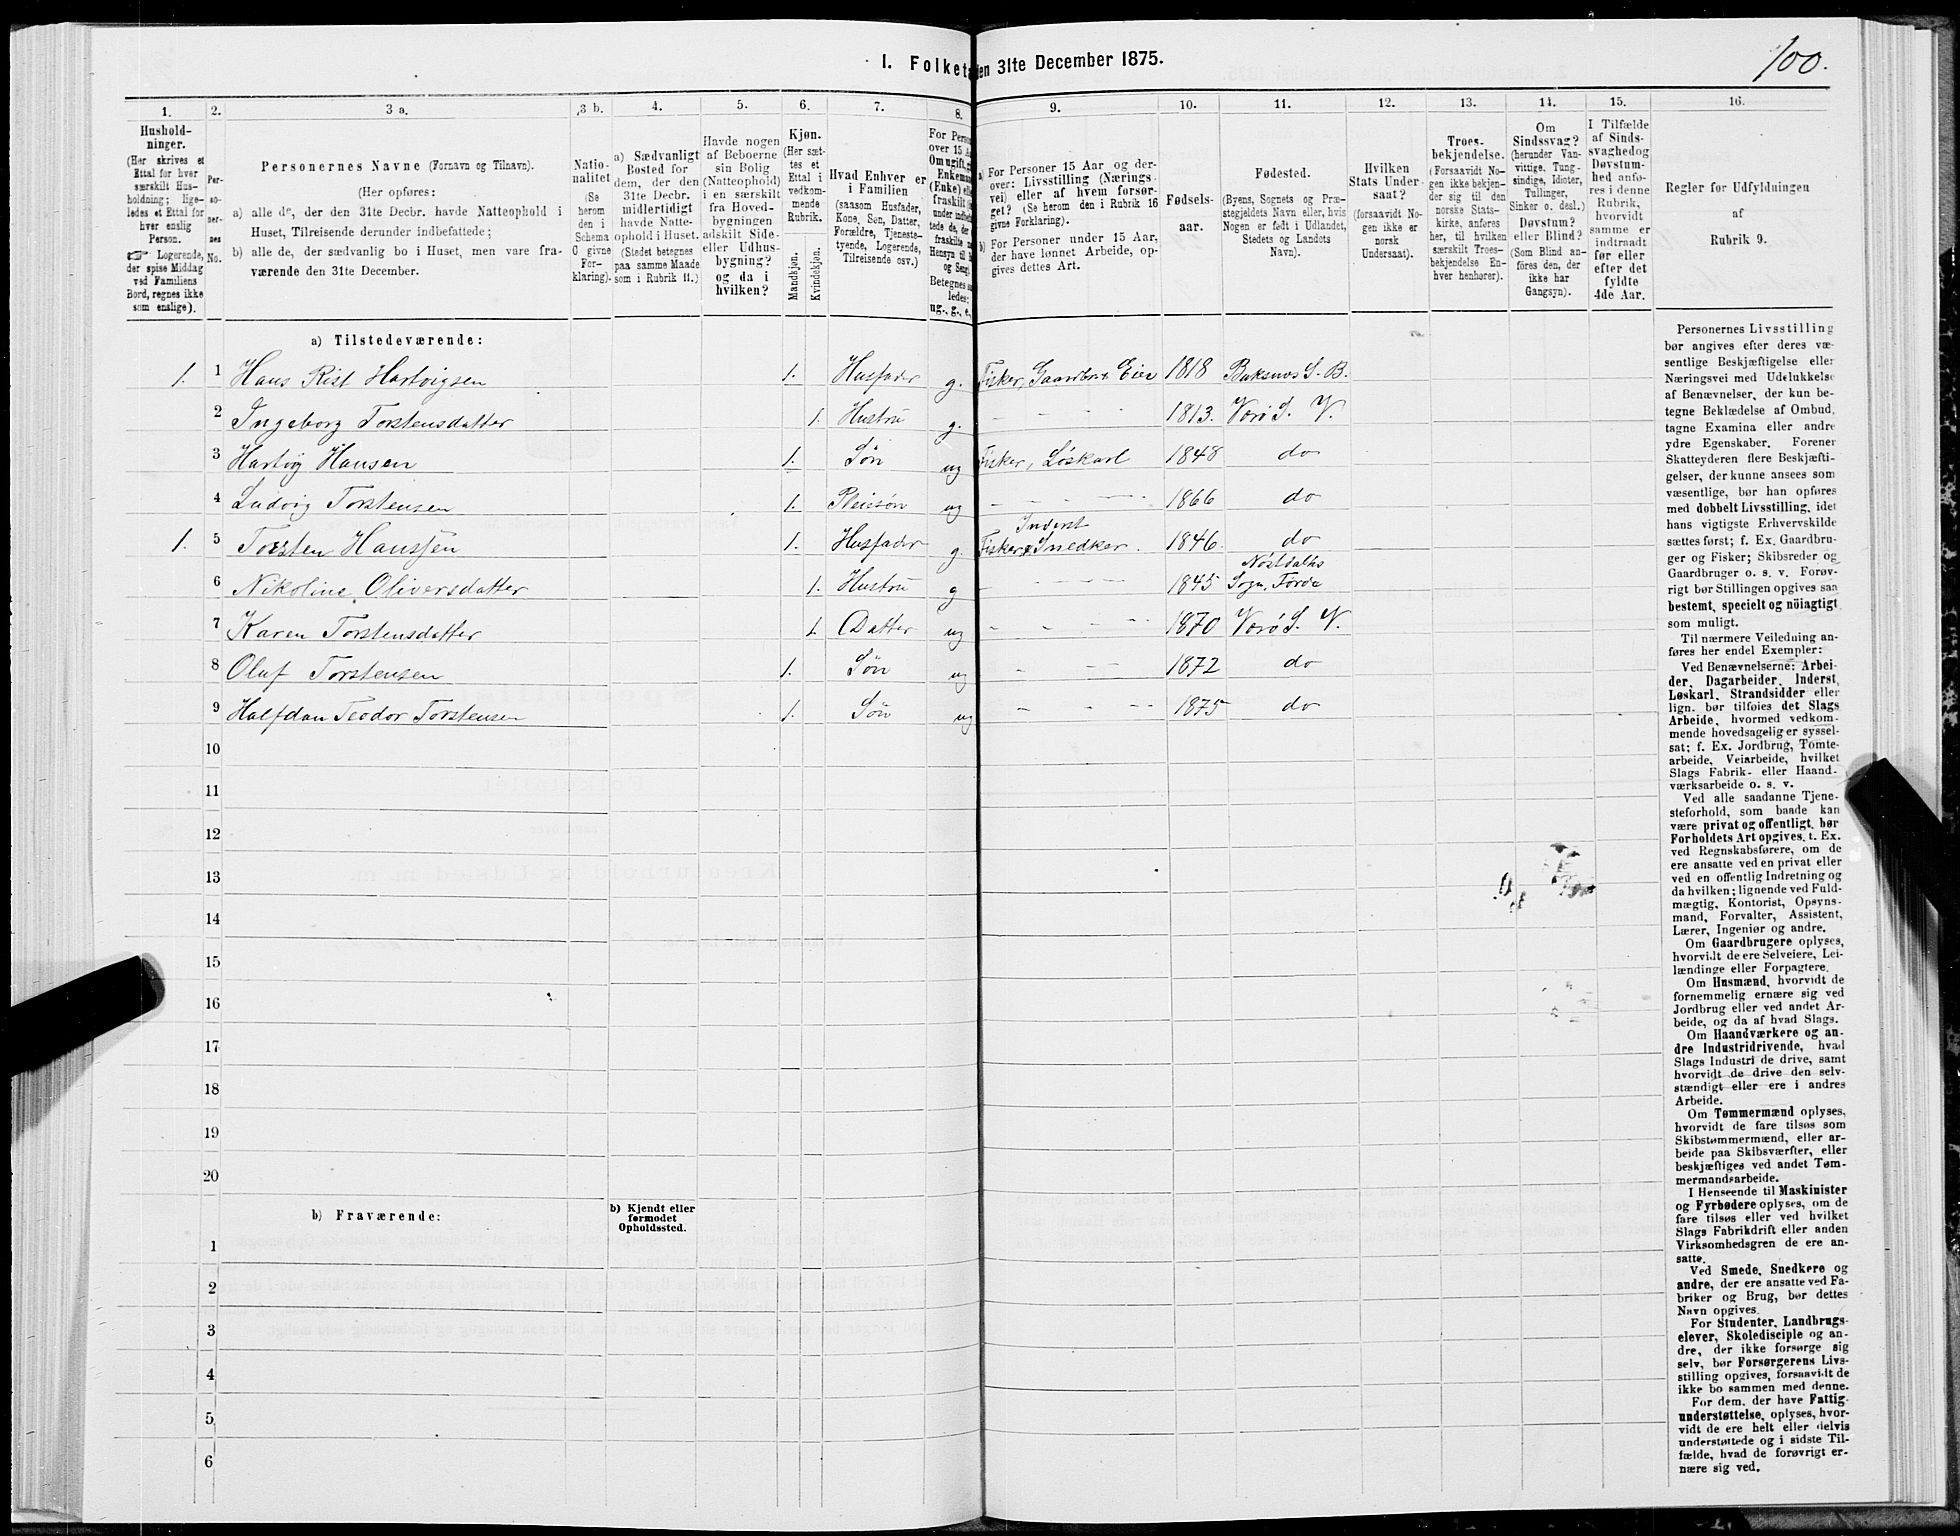 100.
I. Folketa den 31te December 1875.
1. 2. 3 a. 3 b. 4. 5. 6. 7. 8. 9. 10. 11. 12. 13. 14. 15. 16.
Hushold-
ninger.
(Her skrives et
Ettal for hver
særskilt Hus-
holdning; lige-
ledes et Ettal for
hver enslig
Person.
☞ Logerende,
der spise Middag
ved Familiens
Bord, regnes ikke
som enslige).
Per-
so-
ner-
nes
No.
Personernes Navne (Fornavn og Tilnavn).
(Her opføres:
a) alle de, der den 31te Decbr. havde Natteophold i
Huset, Tilreisende derunder indbefattede;
b) alle de, der sædvanlig bo i Huset, men vare fra-
værende den 31te December.
Natio-
nalitet
(Se
herom
den i
Schema
O givne
For-
klaring).
a) Sædvanligt
Bosted for
dem, der den
31te Decbr.
midlertidigt
havde Natte-
ophold i Huset.
(Stedet betegnes
paa samme Maade
som i Rubrik 11.)
Havde nogen
af Beboerne
sin Bolig
(Natteophold)
i en særskilt
fra Hoved-
bygningen
adskilt Side-
eller Udhus-
bygning?
og da i
hvilken?
Kjøn.
(Her sæt-
tes et
Ettal i
vedkom-
mende
Rubrik.
Mandkjøn.
Kvindekjøn.
Hvad Enhver er
i Familien
(saasom Husfader,
Kone, Søn, Datter,
Forældre, Tjeneste-
tyende, Logerende,
Tilreisende osv.)
For Perso
over 15 A
Om ugift, g
Enkema
(Enke) ell
fraskilt
under indbe
tede de, der
fraskilte
Hensyn til B
og Seng.
Betegnes s
ledes:
ug., g., e.,
a) For Personer 15 Aar og der-
over: Livsstilling (Nærings-
vei) eller af hvem forsør-
get? (Se herom den i Rubrik 16
givne Forklaring).
b) For Personer under 15 Aar,
der have lønnet Arbeide, op-
gives dettes Art.
Fødsels-
aar.
Fødested.
(Byens, Sognets og Præ-
stegjeldets Navn eller, hvis
Nogen er født i Udlandet,
Stedets og Landots
Navn).
Hvilken
Stats Under-
saat?
(forsaavidt No-
gen ikke er
norsk
Undersaat).
Troes-
bekjendelse.
(Forsaavidt No-
gen ikke bekjen-
der sig til den
norske Stats-
kirke, anføres
her, til hvilken
særskilt Troes-
bekjendelse En-
hver henhører).
Om
Sindssvag?
(herunder Van-
vittige, Tung-
sindige, Idioter,
Tullinger,
Sinker o. desl.)
Døvstum?
eller Blind?
(Som Blind an-
føres den, der
ikke har
Gangsyn).
I Tilfælde
af Sinds-
svaghedog
Døvstum-
hed anfø-
res i denne
Rubrik,
hvorvidt
samme er
indtraadt
før eller
efter det
fyldte
4de Aar.
Regler før Udfyldningen
af
Rubrik 9.
a) Tilstedeværende:
1. 1 Hans Rist Hartvigsen 1. Husfader g. Fisker, Gaardbr. Eier 1818 Buksnæs S. B.
2 Ingeborg Torstensdatter 1. Hustru g. - - - 1813. Værø S. V.
3 Hartvig Hansen 1. Søn ug Fisker, Løskarl 1848 do
4 Ludvig Torstensen 1. Pleiesøn ug - - - 1866 do
Inderst
1. 5 Torsten Hanssen 1. Husfader g. Fisker, Snedker. 1846. do
Nøstdalhs
6 Nikoline Oliversdatter 1. Hustru g - - - 1845 Sogn, Førde
7 Karen Torstensdatter 1. Datter ug - - - 1870 Værø S. V.
8 Oluf Torstensen 1. Søn ug - - - 1872 do
9 Halfdan Teodor Torstensen 1. Søn ug - - - 1875 do
10
11
12
13
14
15
16
17
18
19
20
b) Fraværende:
b) Kjendt eller
formodet
Opholdssted.
1
2
3
4
5
6
Personernes Livsstilling
bør angives efter deres væ-
sentlige Beskjæftigelse eller
Næringsvei med Udelukkelse
af Benævnelser, der kun be-
tegne Beklædelse af Ombud,
tagne Examina eller andre
ydre Egenskaber. Forener
Skatteyderen flere Beskjæfti-
gelser, der kunne ansees som
væsentlige, bør han opføres
med dobbelt Livsstilling, idet
hans vigtigste Erhvervskilde
sættes først; f. Ex. Gaardbru-
ger og Fisker; Skibsreder og
Gaardbruger o. s. v. Forøv-
rigt bør Stillingen opgives saa
bestemt, specielt og nöiagtigt
som muligt.
Til nærmere Veiledning an-
føres her endel Exempler:
Ved Benævnelserne: Arbei-
der, Dagarbeider, Inderst,
Løskarl, Strandsidder eller
lign. bør tilføies det Slags
Arbeide, hvormed vedkom-
mende hovedsagelig er syssel-
sat; f. Ex. Jordbrug, Tomte-
arbeide, Veiarbeide, hvilket
Slags Fabrik- eller Haand-
værksarbeide o. s. v.
Ved alle saadanne Tjene-
steforhold, som baade kan
være privat og offentligt, bør
Forholdets Art opgives, t. Ex.
ved Regnskabsførere, om de
ere ansatte ved en privat eller
ved en offentlig Indretning og
da hvilken; lignende ved Fuld-
mægtig, Kontorist, Opsyns-
mand, Forvalter, Assistent,
Lærer, Ingeniør og andre.
Om Gaardbrugere oplyses,
hvorvidt de ere Selveiere, Lei-
lændinge eller Forpagtere.
Om Husmænd, hvorvidt de
fornemmelig ernære sig ved
Jordbrug eller ved andet Ar-
beide, og da af hvad Slags.
Om Haandværkere og an-
dre Industridrivende, hvad
Slags Industri de drive, samt
hvorvidt de drive den selv-
stændigt eller ere i andres
Arbeide.
Om Tømmermænd oplyses,
hvorvidt de fare tilsøs som
Skibstømmermænd, eller ar-
beide paa Skibsværfter, eller
beskjæftiges ved andet Tøm-
mermandsarbeide.
I Henseende til Maskinister
og Fyrbødere oplyses, om de
fare tilsøs eller ved hvilket
Slags Fabrikdrift eller anden
Virksomhedsgren de ere an-
satte.
Ved Smede, Snedkere og
andre, der ere ansatte ved Fa-
briker og Brug, bør dettes
Navn opgives.
For Studenter, Landbrugs-
elever, Skoledisciple og an-
dre, der ikke forsørge sig
selv, bør Forsørgerens Livs-
stilling opgives, forsaavidt de
ikke bo sammen med denne.
For dem, der have Fattig-
understøttelse, oplyses, hvor-
vidt de ere helt eller delvis
understøttede og i sidste Til-
fælde, hvad de forøvrigt er-
nære sig ved.